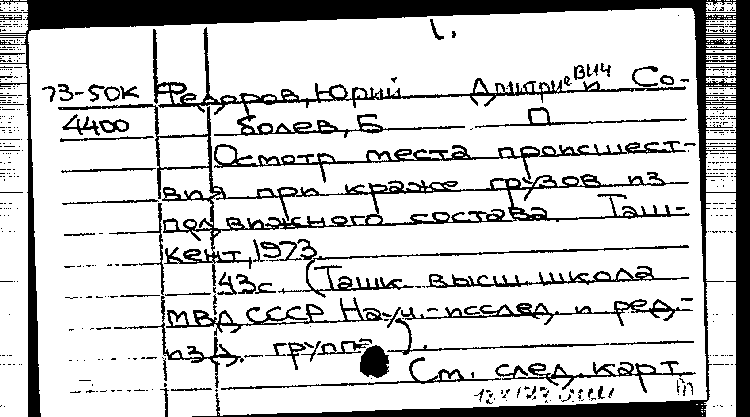 1.
73-50К Федоров, Юрий Дмитриевич и Со-
4400 болев, Б П
Осмотр места происшест-
вия при краже грузов из
подвижного состава. Таш-
кент, 1973.
43с. (Ташк высш. школа
МВД СССР Науч.-исслед. и ред.-
изд. группа).
См. след. карт